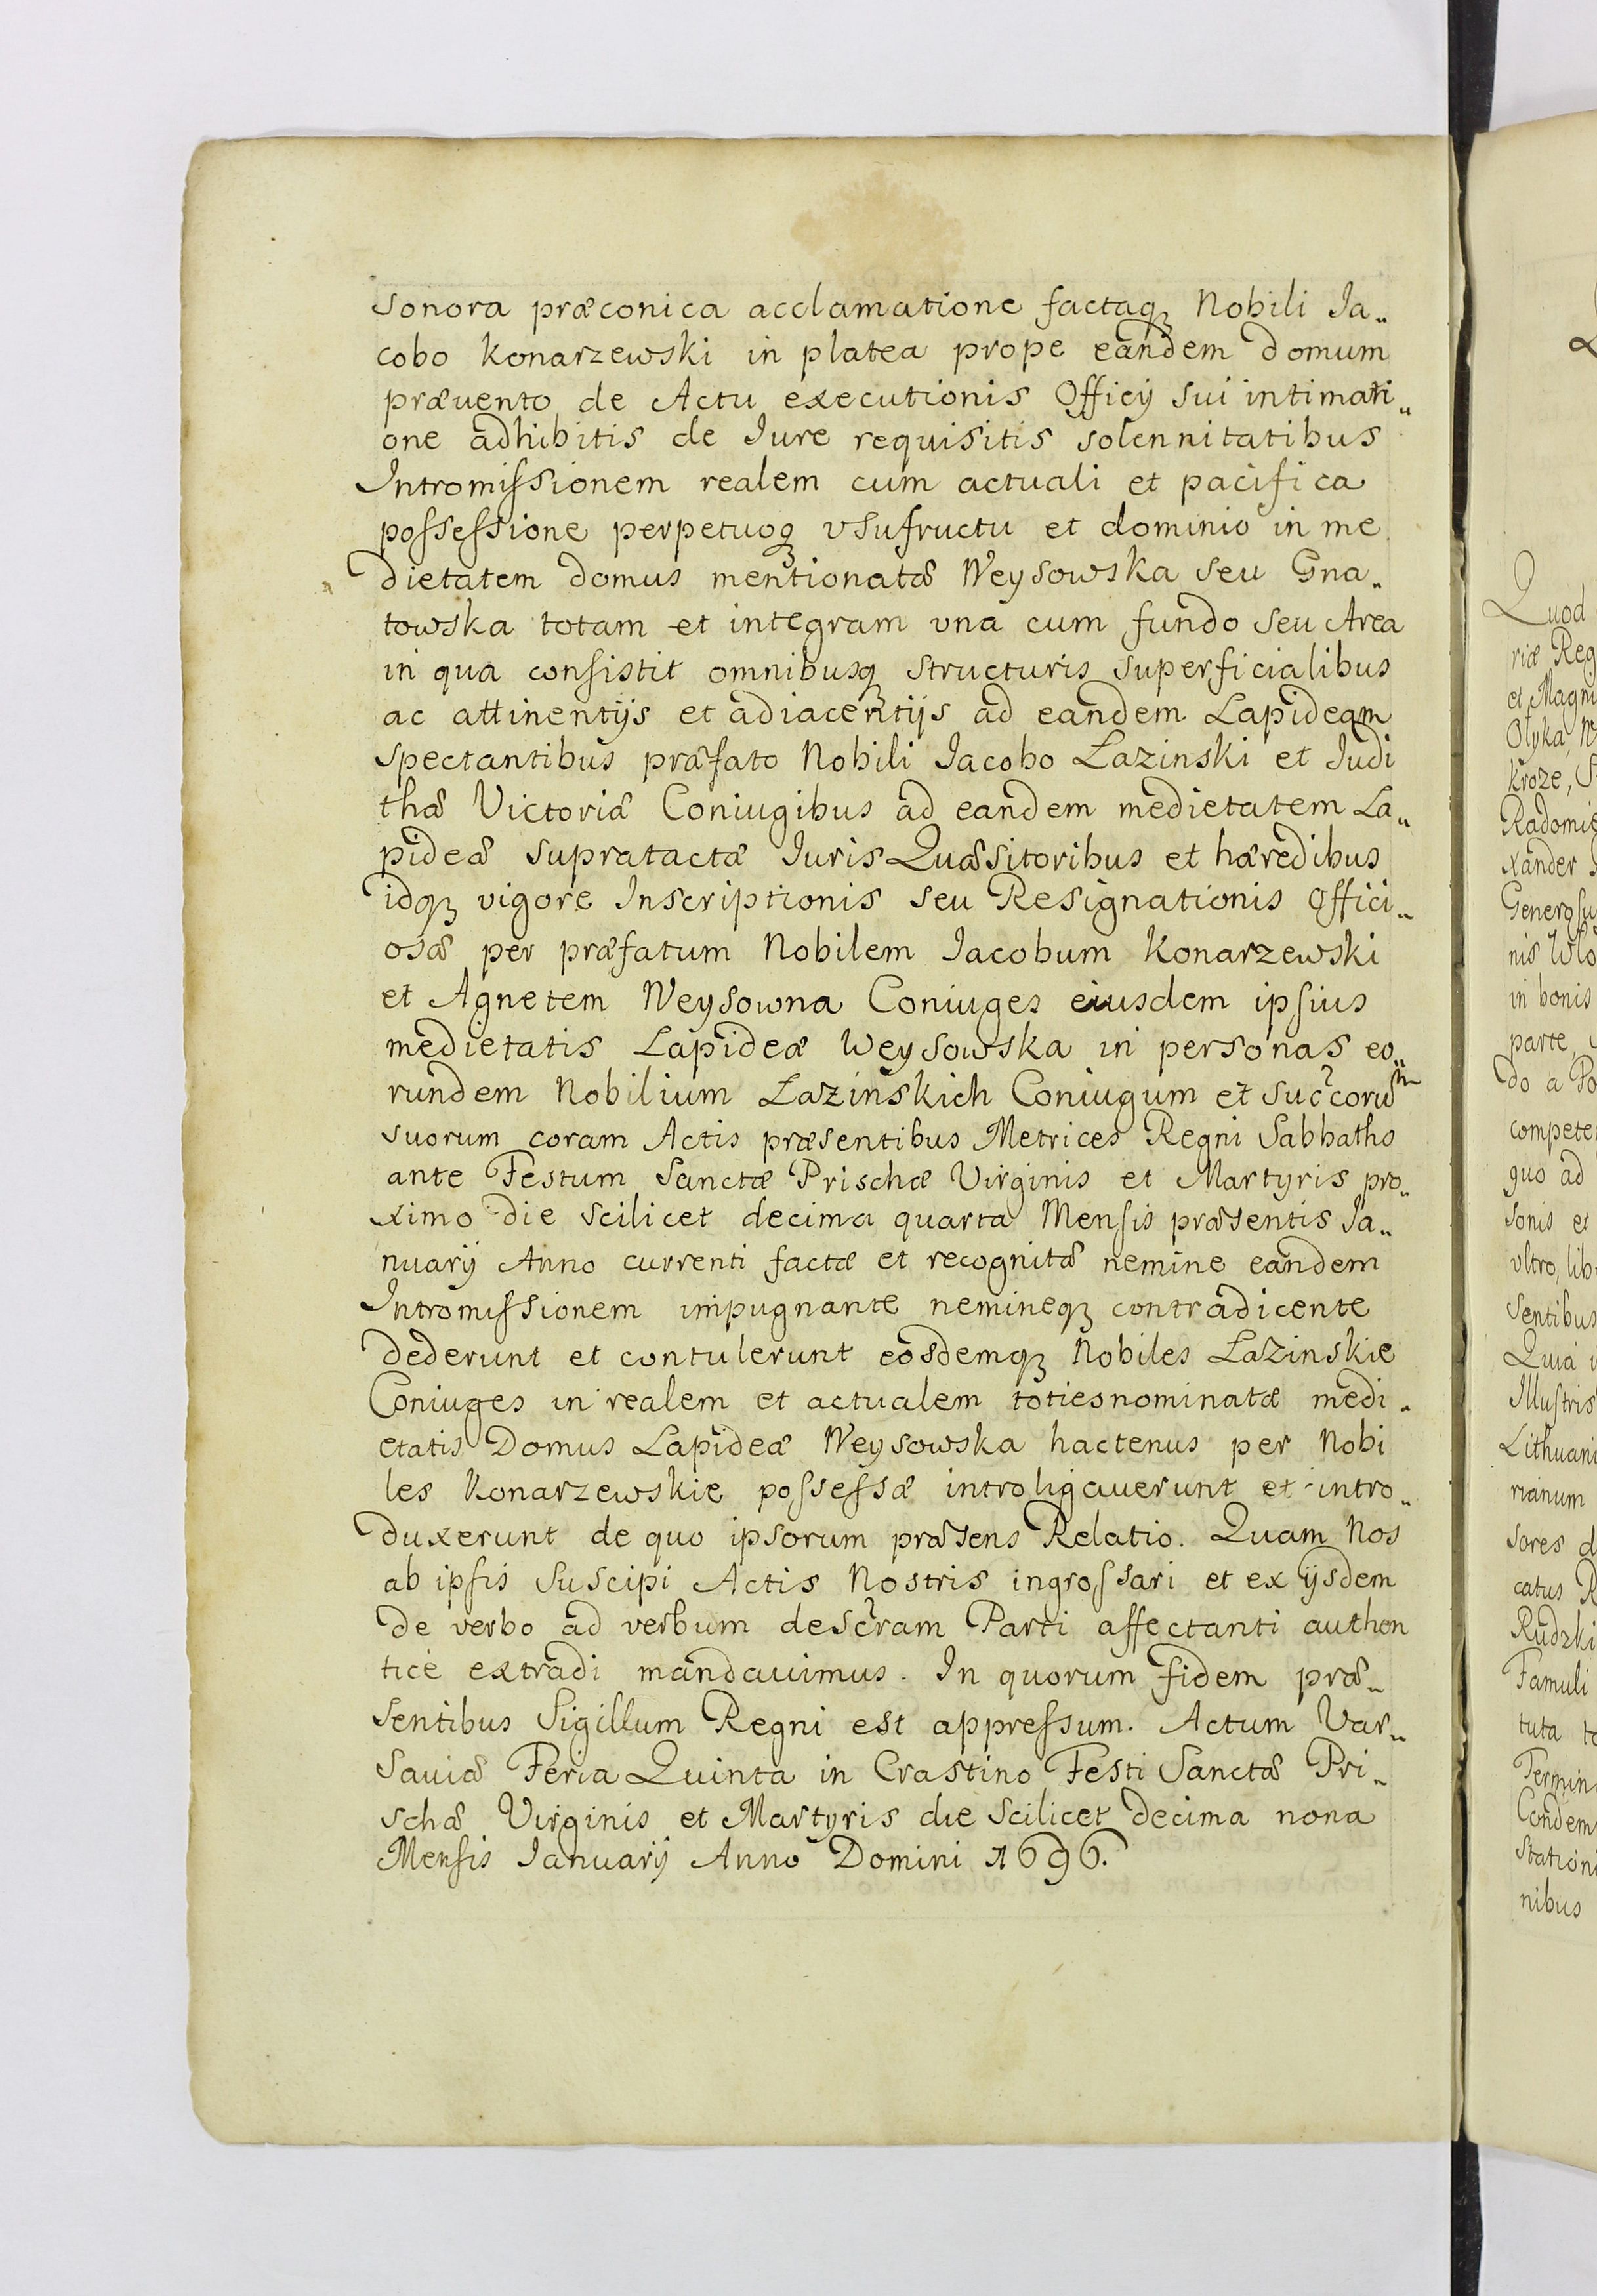 sonora præconica acclamatione factaq₃ Nobili Ia„
cobo Konarzewski in platea prope eandem domum
præuento de Actu executionis Officÿ sui intimati„
one adhibitis de Iure requisitis solennitatibus
Intromiſsionem realem cum actuali et pacifica
poſseſsione perpetuoq₃ vsufructu et dominio in me
dietatem domus mentionatæ Weysowska seu Gna„
towska totam et integram vna cum fundo seu Area
in qua conſistit omnibusq₃ structuris superficialibus
ac attinentÿs et adiacentÿs ad eandem Lapideam
spectantibus præfato Nobili Iacobo Łazinski et Iudi
thæ Victoriæ Coniugibus ad eandem medietatem La„
pideæ supratactæ Iuris Quæsitoribus et hæredibus
idq₃ vigore Inscriptionis seu Resignationis Offici„
osæ per præfatum Nobilem Iacobum Konarzewski
et Agnetem Weysowna Coniuges eiusdem ipſius
medietatis Lapideæ Weysowska in personas eo„
rundem Nobilium Łazinskich Coniugum et succ̃orum
suorum coram Actis præsentibus Metrices Regni Sabbatho
ante Festum Sanctæ Prischæ Virginis et Martyris pro„
ximo die scilicet decima quarta Menſis præsentis Ia„
nuarÿ Anno currenti factæ et recognitæ nemine eandem
Intromiſsionem impugnante nemineq₃ contradicente
dederunt et contulerunt eosdemq₃ Nobiles Łazinskie
Coniuges in realem et actualem totiesnominatæ medi„
etatis Domus Lapideæ Weysowska hactenus per Nobi
les Konarzewskie poſseſsæ introligauerunt et intro„
duxerunt de quo ipsorum præsens Relatio. Quam Nos
ab ipſis suscipi Actis Nostris ingroſsari et ex ÿsdem
de verbo ad verbum desc̃ram Parti affectanti authen
ticè extradi mandauimus. In quorum fidem præ„
sentibus Sigillum Regni est appreſsum. Actum Var„
sauiæ Feria Quinta in Crastino Festi Sanctæ Pri„
schæ Virginis et Martyris die scilicet decima nona
Menſis Ianuarÿ Anno Domini 1696.
Quod
riæ Reg
et Magni
Olyka,
Kroze,
Radomie
xander
Generoſu
nis Wło
in bonis
parte,
do a Po
compete
quo ad
sonis et
vltro, lib
sentibus
Quia
Illuſtris
Lithuani
rianum
sores d
catus R
Rudzki
Famuli
tuta
Termin
Condem
Station
nibus